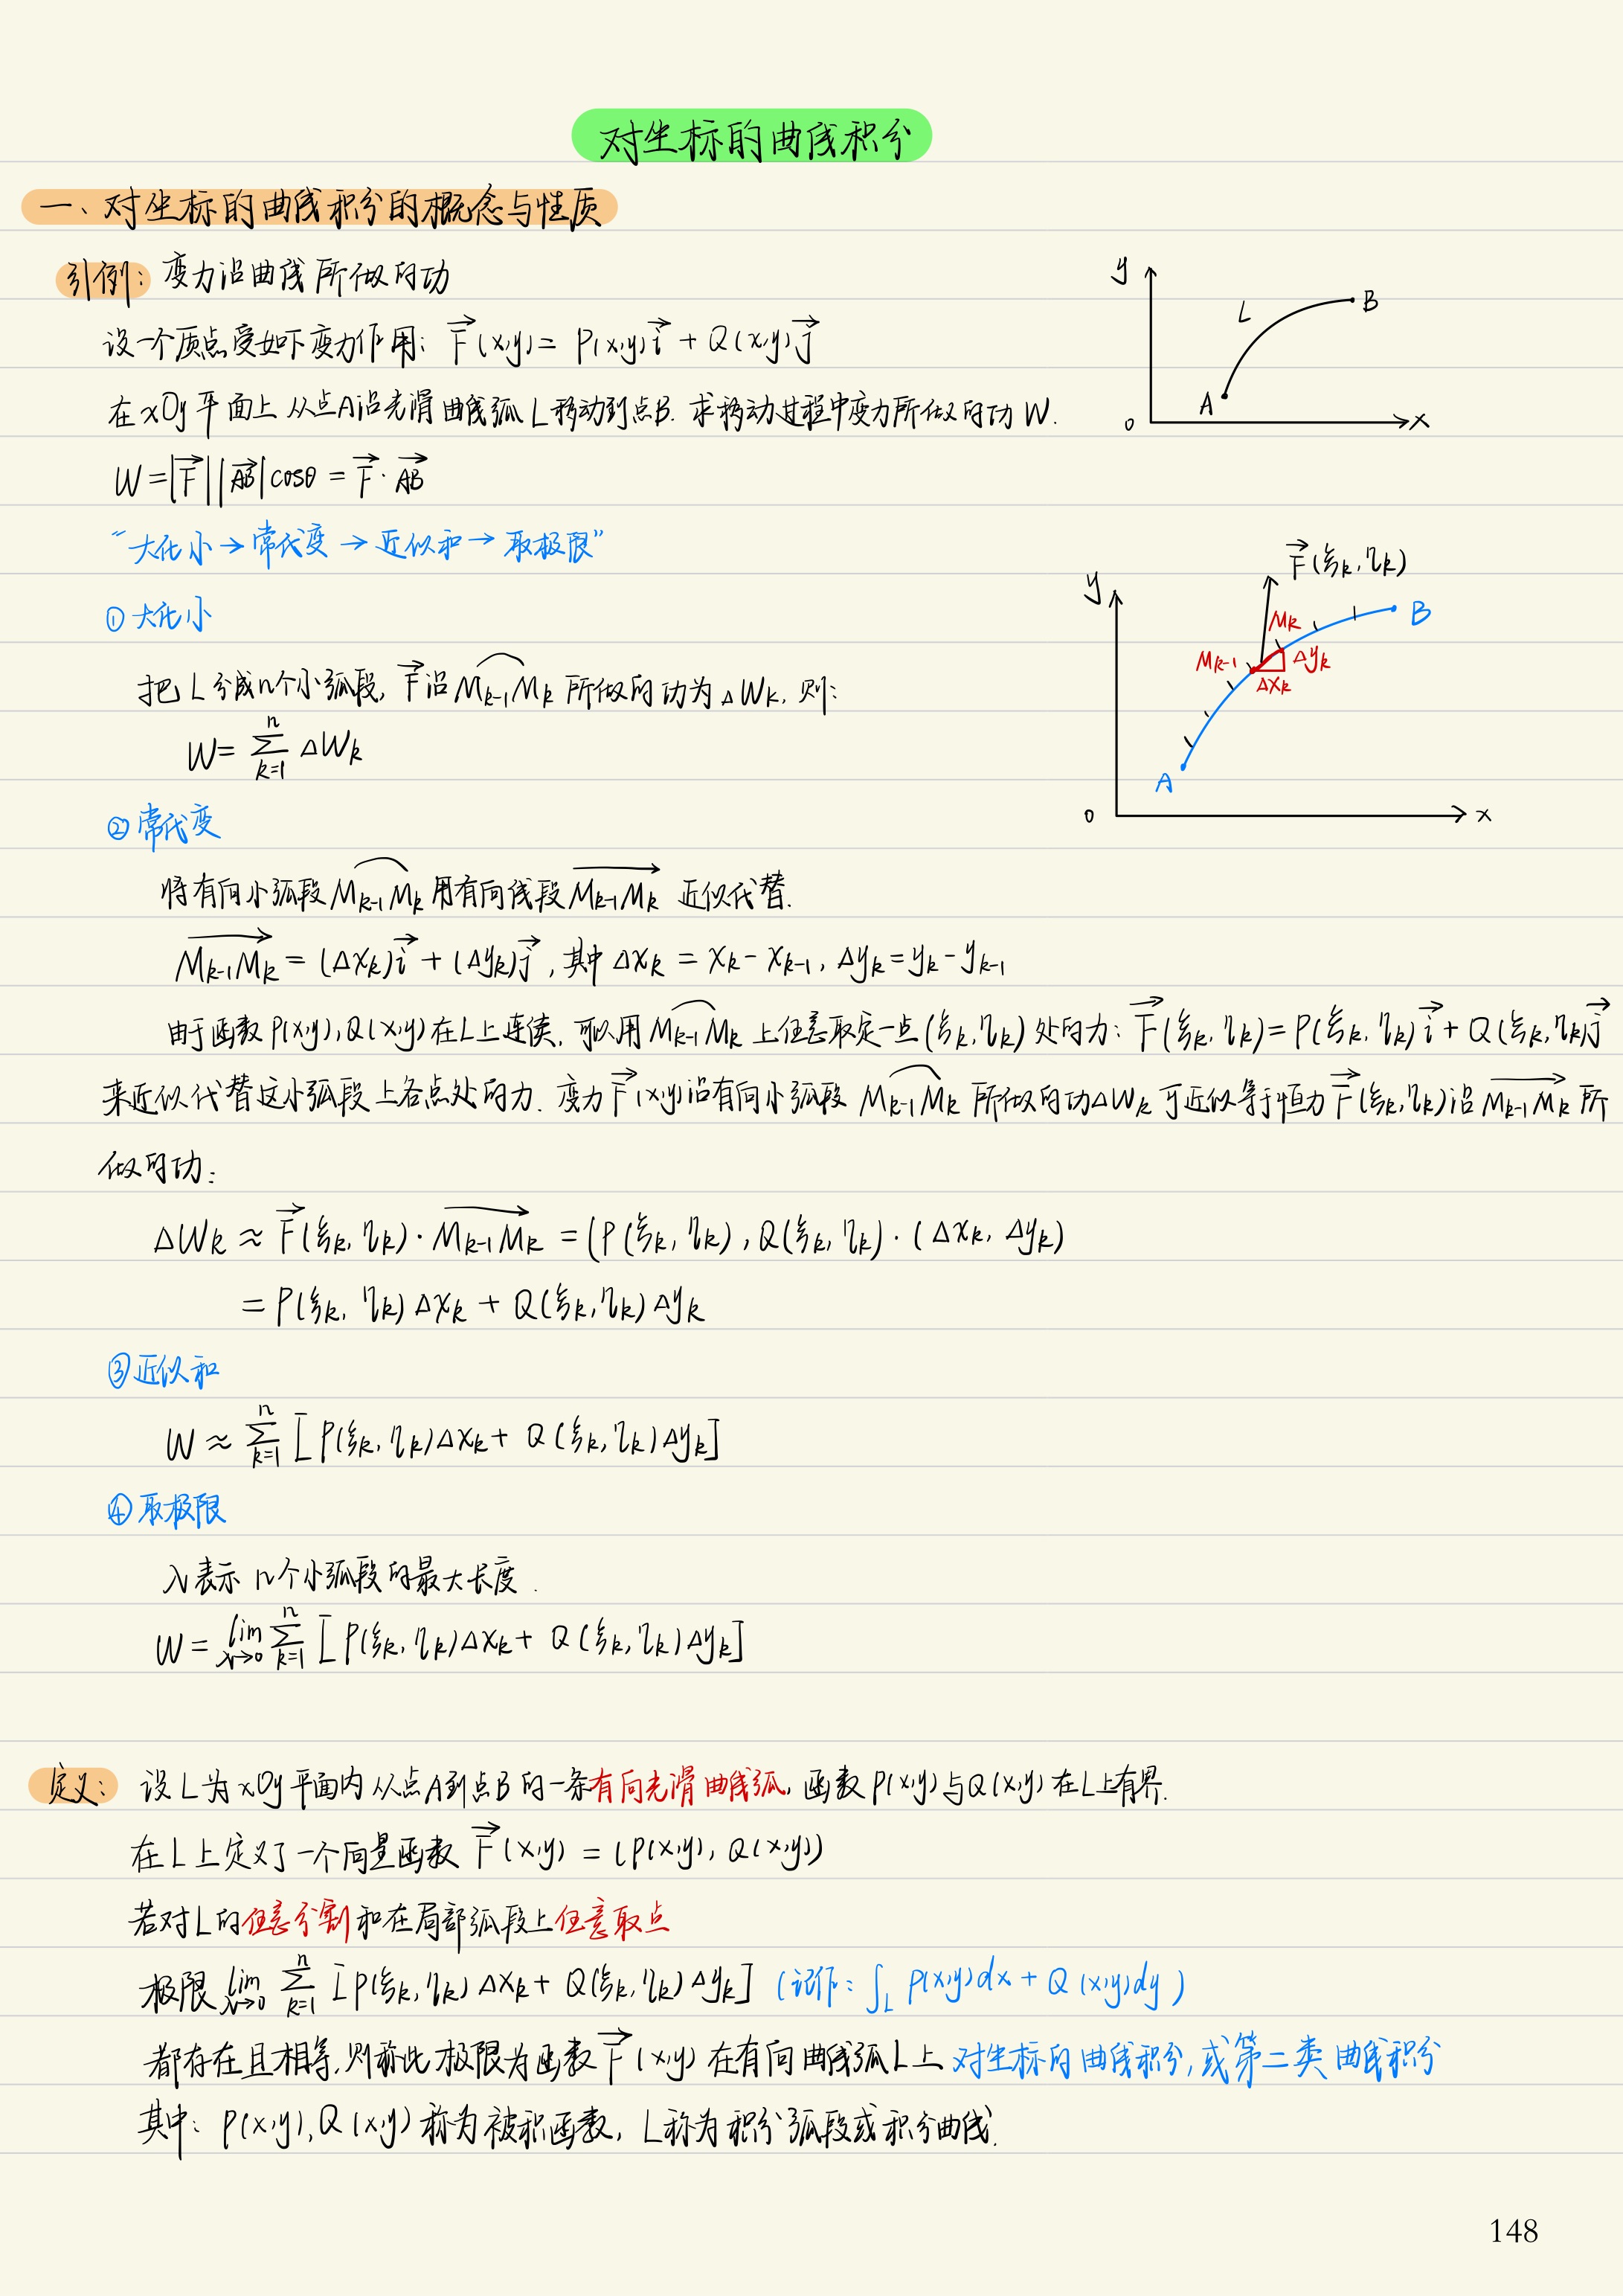 对坐标的曲线积分
一、对坐标的曲线积分的概念与性质
引例: 变力沿曲线所做的功
设一个质点受如下变力作用: F⃗(x,y) = P(x,y)i⃗ + Q(x,y)j⃗
在xOy平面上从点A沿光滑曲线弧L移动到点B. 求移动过程中变力所做的功W.
y
L
B
A
0
x
W=|F⃗||AB⃗|cosθ = F⃗·AB⃗
“大化小→常代变→近似和→取极限”
①大化小
把L分成n个小弧段, F⃗沿M⌒ₖ₋₁Mₖ所做的功为ΔWₖ, 则:
W= ∑ₖ₌₁ⁿ ΔWₖ
F⃗(ξₖ,ηₖ)
y
B
Mₖ
Mₖ₋₁
Δyₖ
Δxₖ
A
0
x
②常代变
将有向小弧段M⌒ₖ₋₁Mₖ用有向线段Mₖ₋₁Mₖ→近似代替.
Mₖ₋₁Mₖ→ = (Δxₖ)i⃗ + (Δyₖ)j⃗, 其中Δxₖ = xₖ - xₖ₋₁, Δyₖ = yₖ - yₖ₋₁
由于函数P(x,y),Q(x,y)在L上连续, 可以用M⌒ₖ₋₁Mₖ上任意取定一点(ξₖ,ηₖ)处的力: F⃗(ξₖ,ηₖ)=P(ξₖ,ηₖ)i⃗+Q(ξₖ,ηₖ)j⃗
来近似代替这小弧段上各点处的力. 变力F⃗(x,y)沿有向小弧段M⌒ₖ₋₁Mₖ所做的功ΔWₖ可近似等于恒力F⃗(ξₖ,ηₖ)沿Mₖ₋₁Mₖ→所
做的功:
ΔWₖ ≈ F⃗(ξₖ,ηₖ)·Mₖ₋₁Mₖ→ = (P(ξₖ,ηₖ),Q(ξₖ,ηₖ)·(Δxₖ,Δyₖ)
= P(ξₖ,ηₖ)Δxₖ + Q(ξₖ,ηₖ)Δyₖ
③近似和
W ≈ ∑ₖ₌₁ⁿ [P(ξₖ,ηₖ)Δxₖ + Q(ξₖ,ηₖ)Δyₖ]
④取极限
λ表示n个小弧段的最大长度.
W = lim λ→0 ∑ₖ₌₁ⁿ [P(ξₖ,ηₖ)Δxₖ + Q(ξₖ,ηₖ)Δyₖ]
定义: 设L为xOy平面内从点A到点B的一条有向光滑曲线弧, 函数P(x,y)与Q(x,y)在L上有界.
在L上定义了一个向量函数F⃗(x,y) = (P(x,y), Q(x,y))
若对L的任意分割和在局部弧段上任意取点
极限 lim λ→0 ∑ₖ₌₁ⁿ [P(ξₖ,ηₖ)Δxₖ + Q(ξₖ,ηₖ)Δyₖ] (记作: ∫_L P(x,y)dx + Q(x,y)dy)
都存在且相等, 则称此极限为函数F⃗(x,y)在有向曲线弧L上对坐标的曲线积分, 或第二类曲线积分
其中: P(x,y),Q(x,y)称为被积函数, L称为积分弧段或积分曲线.
148